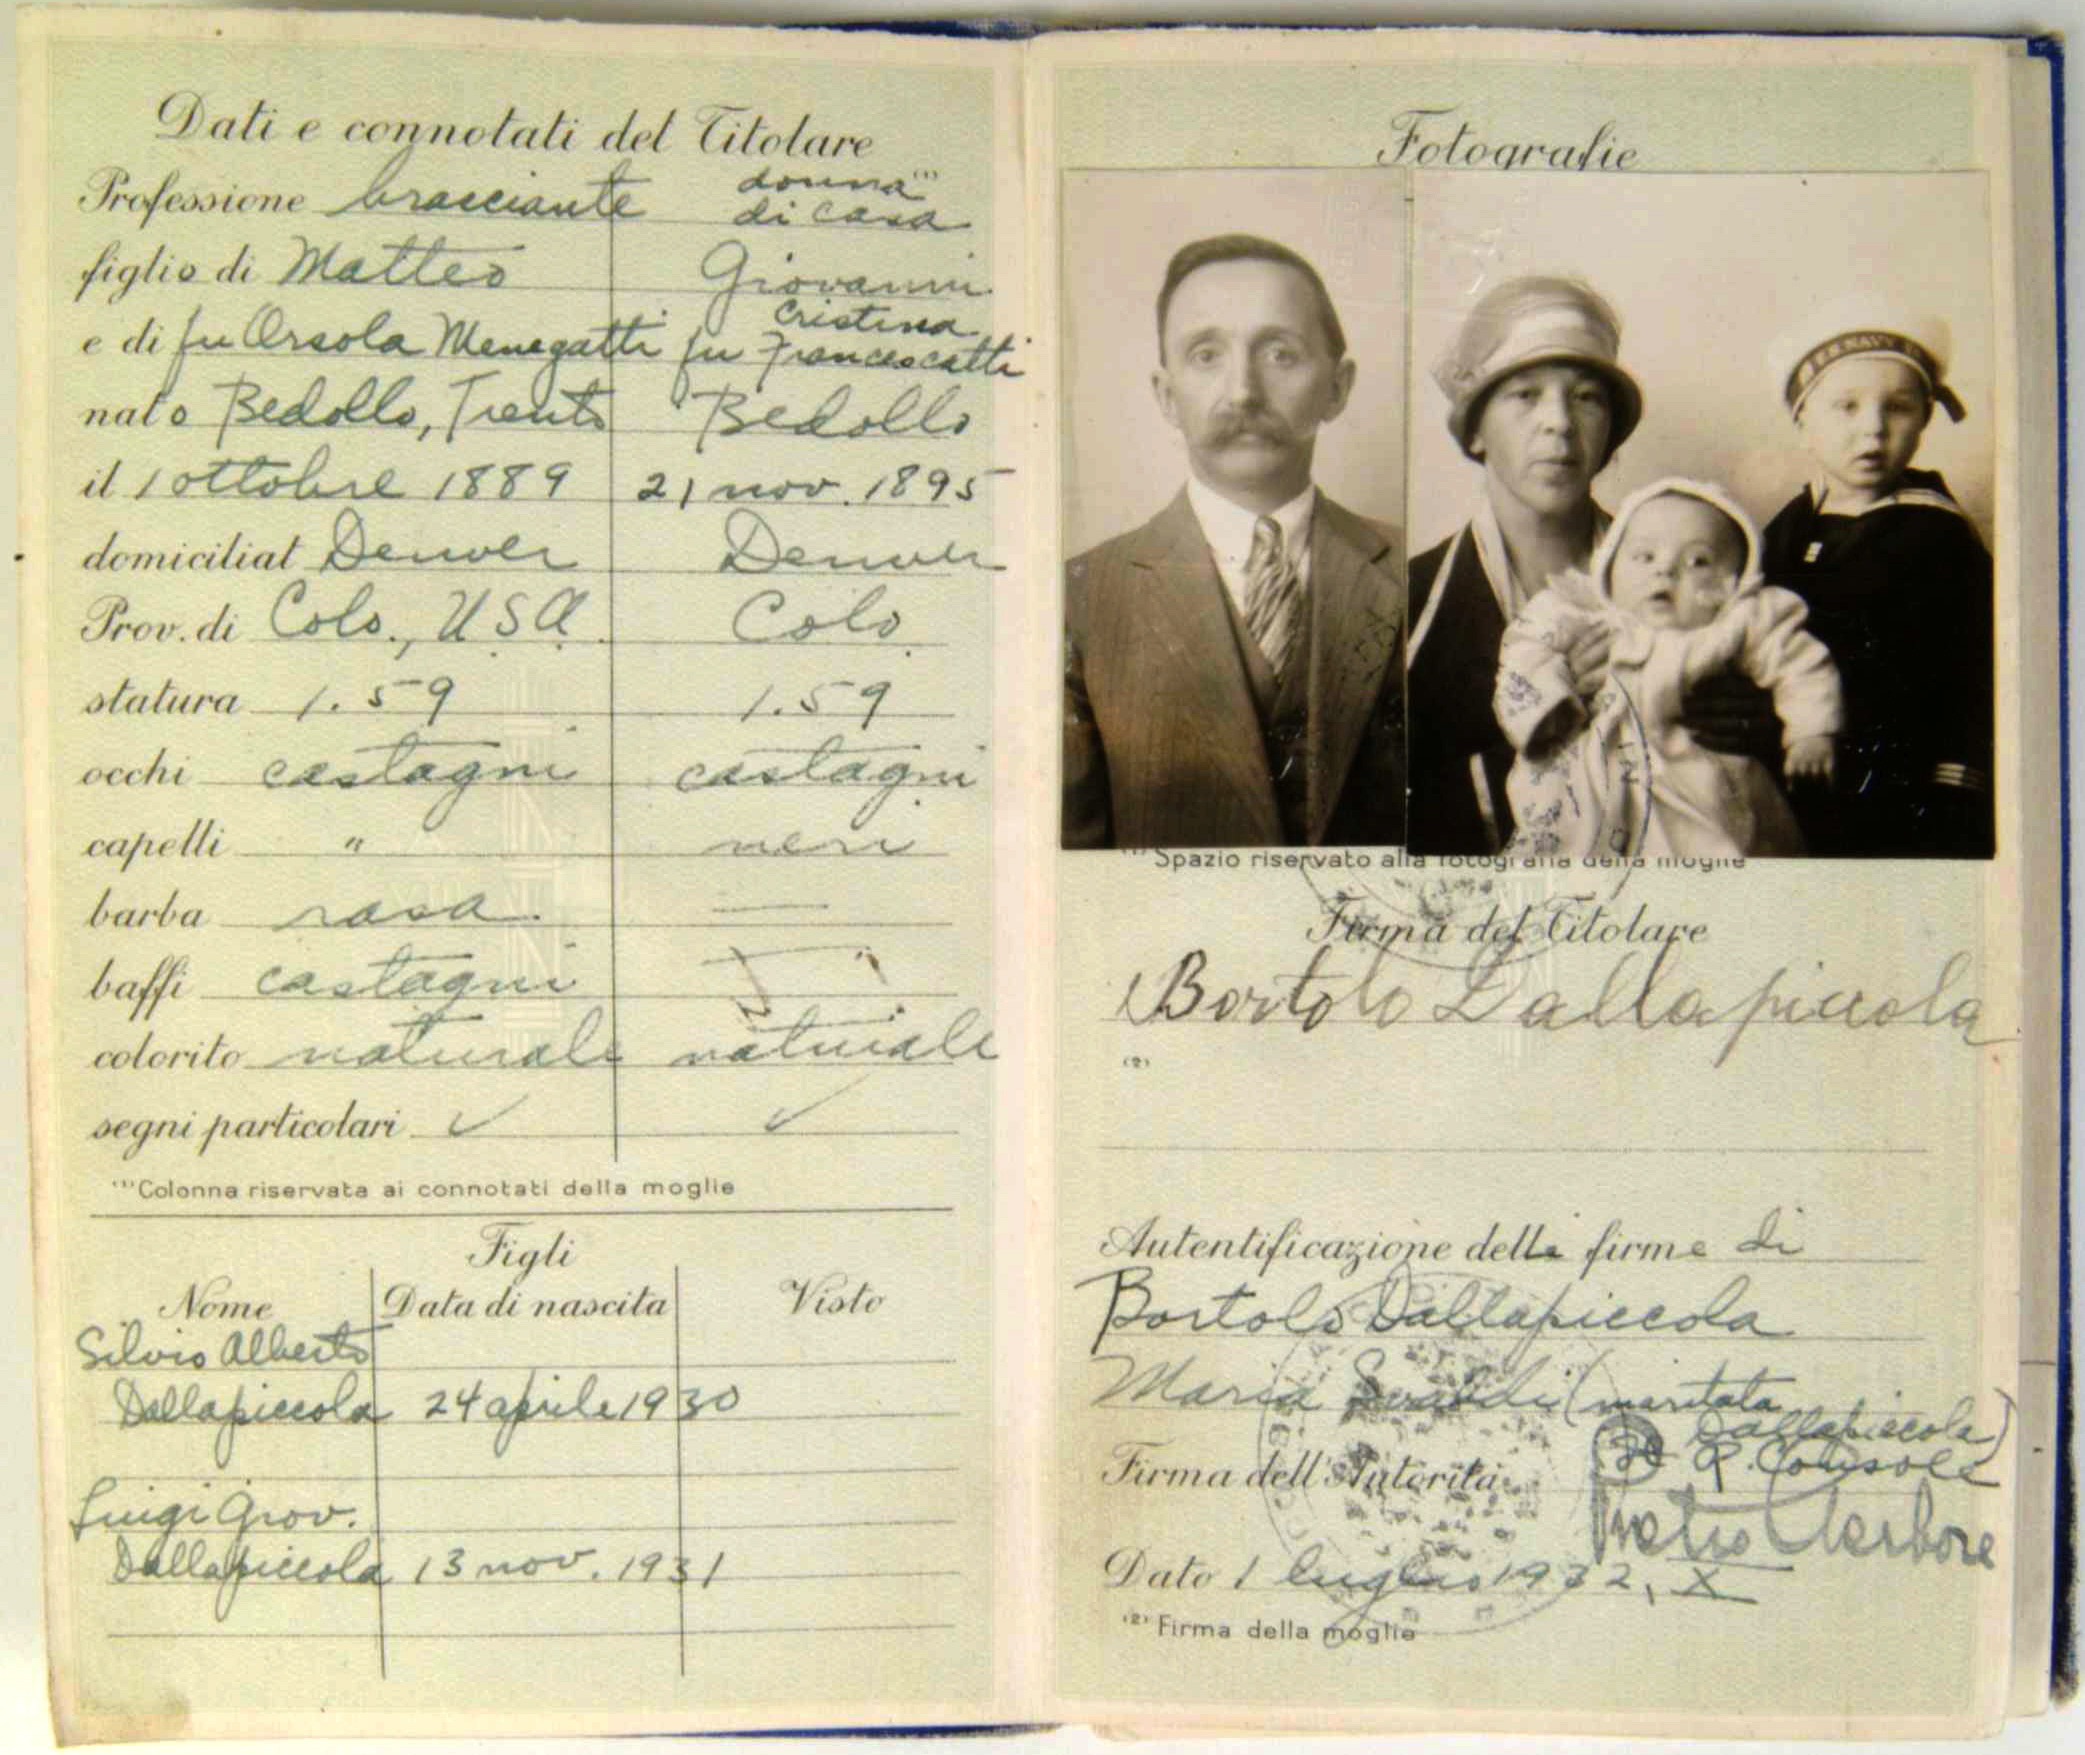 Dati e connotati del Titolare
Professione bracciante donna (1) di casa
figlio di Matteo Giovanni
e di fu Orsola Menegatti fu Cristina Francescatti
nato Bedollo, Trento Bedollo
il 1 ottobre 1889 21 nov. 1895
domiciliat Denver Denver
Prov. di Colo., USA. Colo.
statura 1.59 1.59
occhi castagni castagni
capelli " neri
barba rasa. —
baffi castagni —
colorito naturale naturale
segni particolari ✓ ✓
(1) Colonna riservata ai connotati della moglie
Figli
Nome Data di nascita Visto
Silvio Alberto
Dallapiccola 24 aprile 1930
Luigi Giov.
Dallapiccola 13 nov. 1931
Fotografie
(1) Spazio riservato alla fotografia della moglie
Firma del Titolare
Bortolo Dallapiccola
(2)
Autentificazione delle firme di
Bortolo Dallapiccola
Maria Svaldi (maritata
Dallapiccola)
Firma dell'Autorità Il R. Console
Dato 1 luglio 1932, X
(2) Firma della moglie